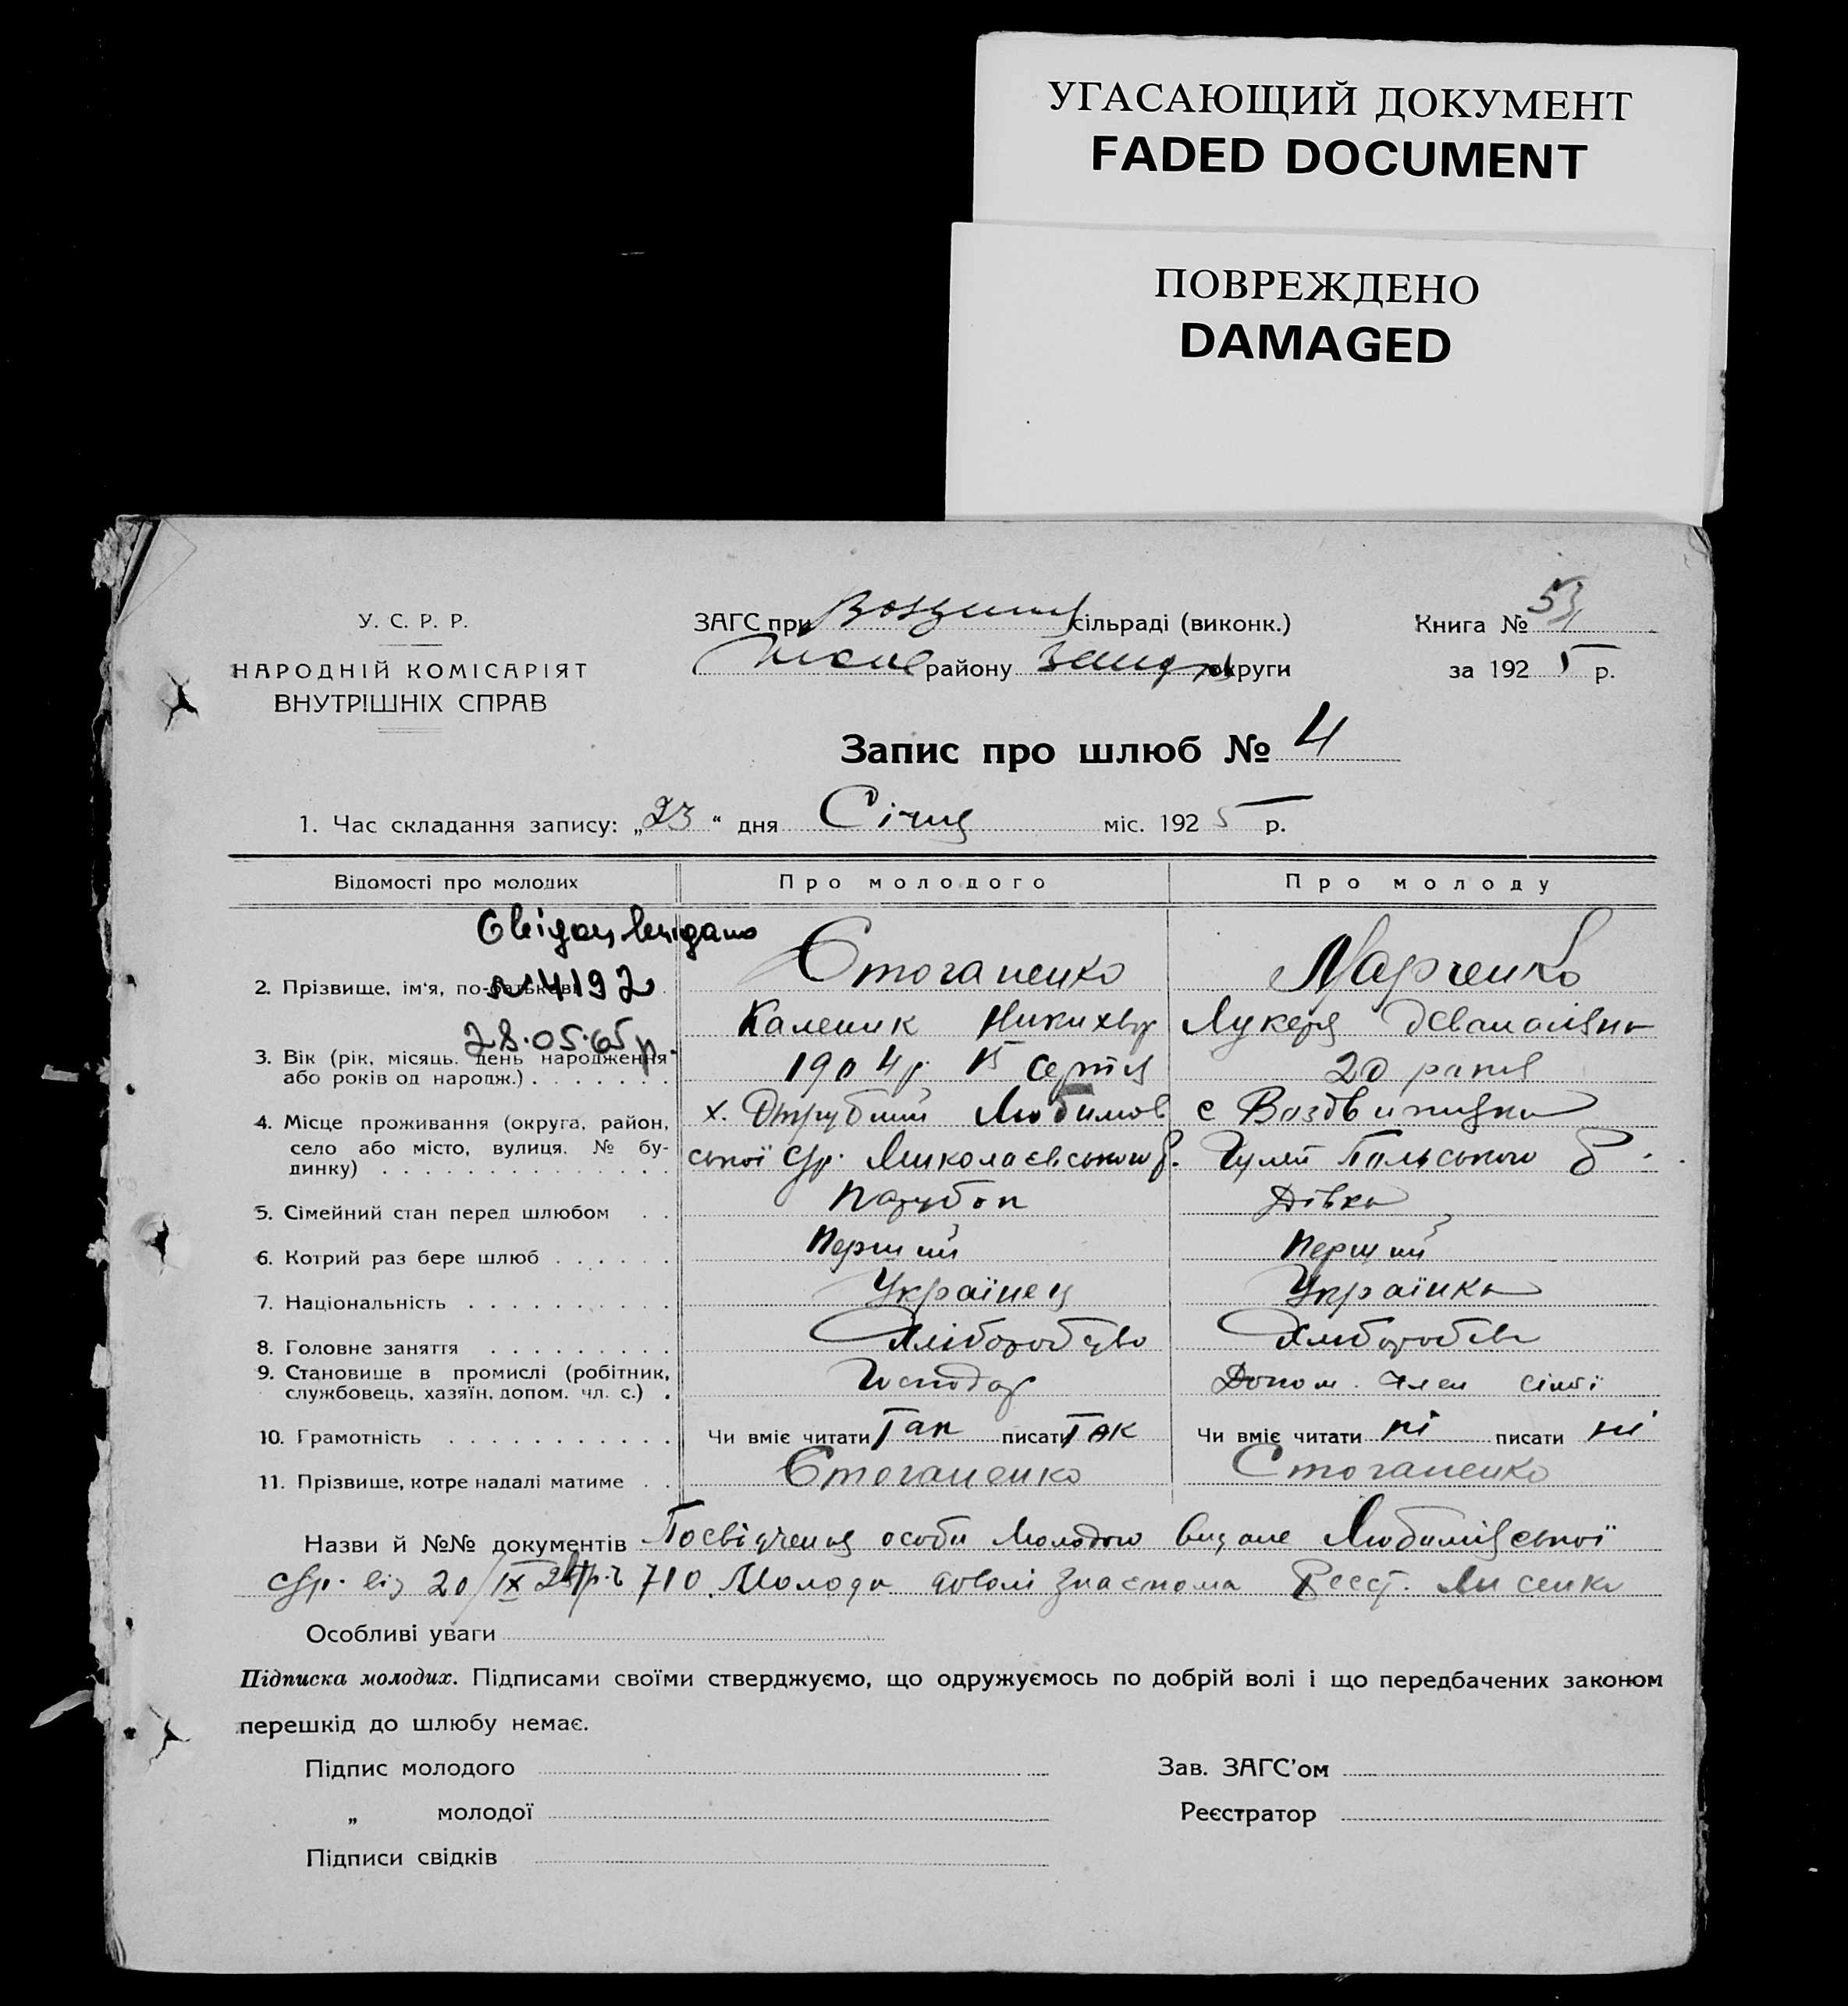 УГАСАЮЩИЙ ДОКУМЕНТ
FADED DOCUMENT
ПОВРЕЖДЕНО
DAMAGED
У. С. Р. Р.
НАРОДНІЙ КОМІСАРІЯТ
ВНУТРІШНІХ СПРАВ
ЗАГС при сільраді (виконк.)
району округи
Книга № 53
за 1925 р.
Запис про шлюб № 4
1. Час складання запису: „23“ дня Січня міс. 1925 р.
Відомості про молодих
Про молодого
Про молоду
№ 4192
28.05.65р.
2. Прізвище, ім'я, по-батькові
Стоганенко
Марченко
Каленик Никихвор
Лукеря
3. Вік (рік, місяць, день народження
або років од народж.)
1904р. 15 серпня
20 років
4. Місце проживання (округа, район,
село або місто, вулиця, № бу-
динку)
х. Отрубний Любимов
ської с/р. Миколаєвського р.
с Воздвиживка
Гуляй Польського р.
5. Сімейний стан перед шлюбом
Парубок
Дівка
6. Котрий раз бере шлюб
Перший
Перший
7. Національність
Українец
Українка
8. Головне заняття
Хліборобство
9. Становище в промислі (робітник,
службовець, хазяїн, допом. чл. с.)
Господар
Допом. член сімї
10. Грамотність
Чи вміє читати Так писати Так
Чи вміє читати ні писати ні
11. Прізвище, котре надалі матиме
Стоганенко
Стоганенко
Назви й №№ документів Посвідчення особи Молодого видане
с/р. від 20/IX 710 Молода Реєст. Лисенко
Особливі уваги
Підписка молодих. Підписами своїми стверджуємо, що одружуємось по добрій волі і що передбачених законом
перешкід до шлюбу немає.
Підпис молодого
„ молодої
Підписи свідків
Зав. ЗАГС'ом
Реєстратор